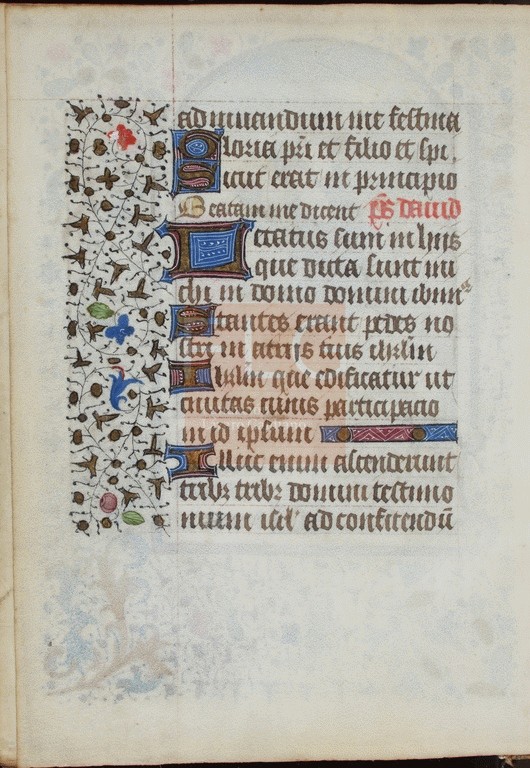 ad iuuandum me festina
Gloria pr̄i et filio et spi.
Sicut erat in principio
Beatam me dicent ps̄ dauid
Letatus sum in hijs
que dicta sunt mi
chi in domo domini ibimꝰ
Stantes erant pedes no
stri in atrijs tuis ihrl̄m
Ihrl̄m que edificatur ut
ciuitas cuius participacio
in id ipsum
Illuc enim ascenderunt
tribꝰ tribꝰ domini testimo
nium isrl̄ ad confitendū